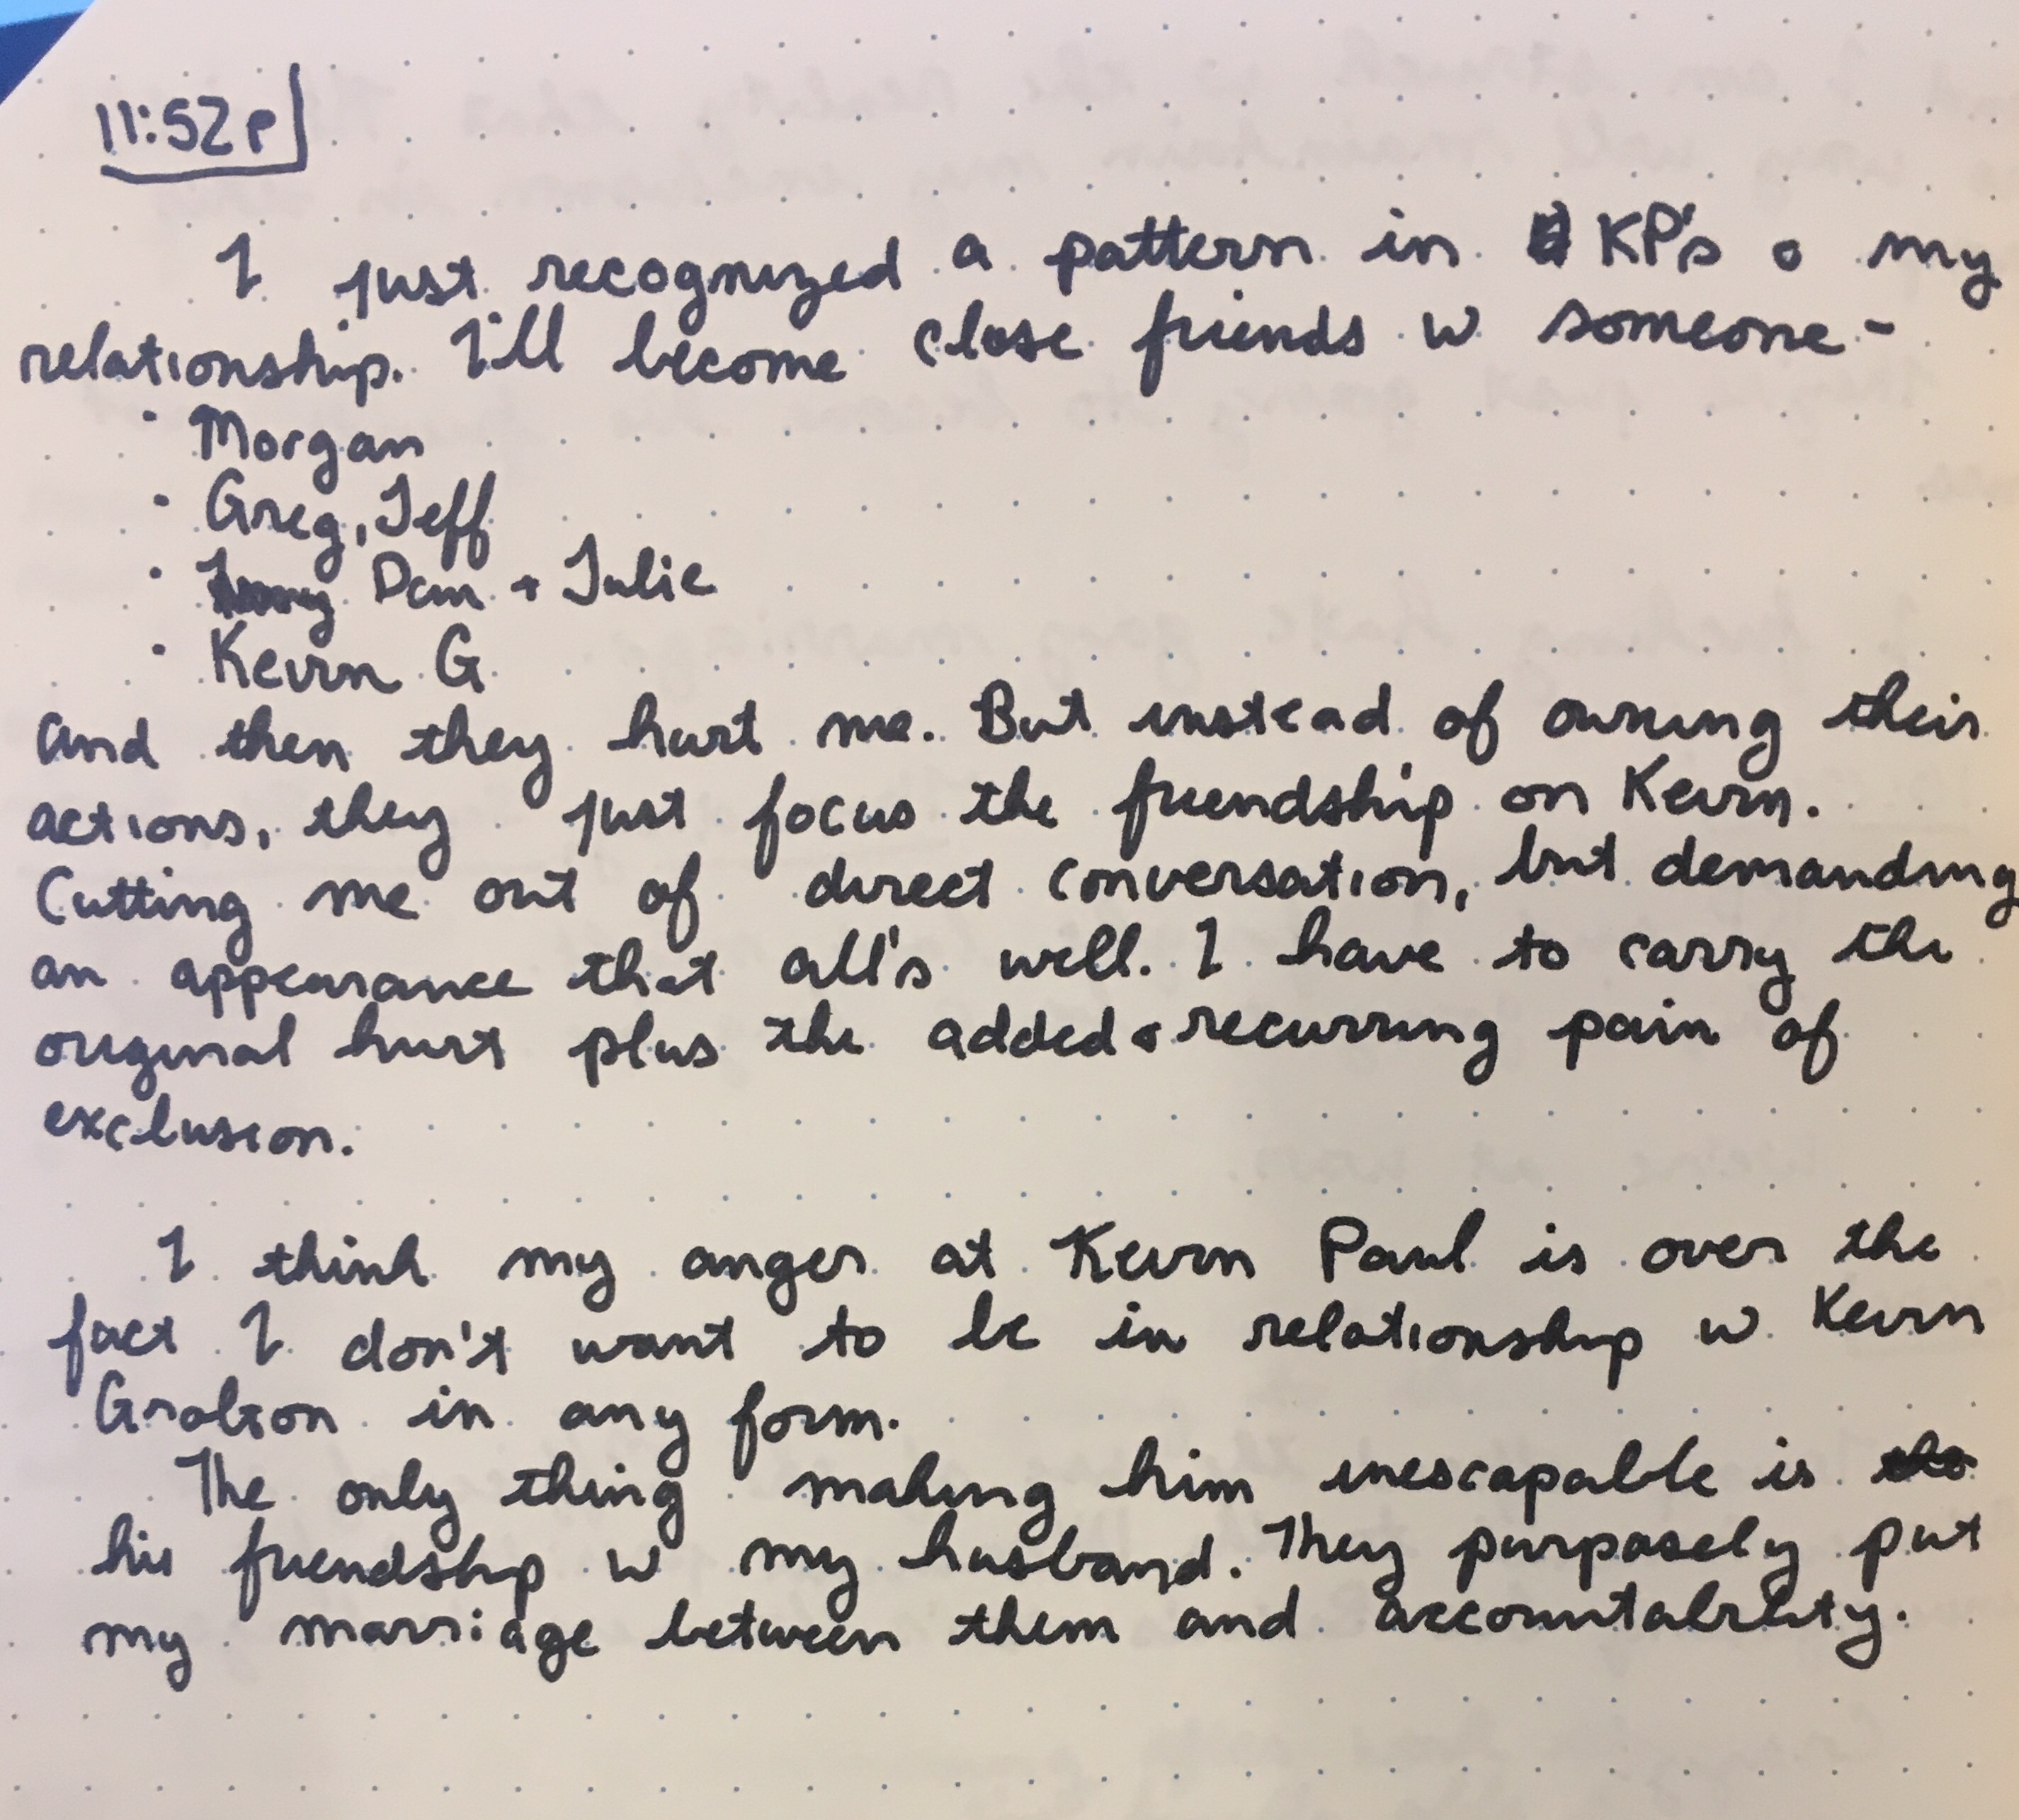 11:52p
I just recognized a pattern in KP's & my
relationship. I'll become close friends w someone-
· Morgan
· Greg, Jeff
· Dan + Julie
· Kevin G
and then they hurt me. But instead of owning their
actions, they just focus the friendship on Kevin.
Cutting me out of direct conversation, but demanding
an appearance that all's well. I have to carry the
original hurt plus the added & recurring pain of
exclusion.
I think my anger at Kevin Paul is over the
fact I don't want to be in relationship w Kevin
in any form.
The only thing making him inescapable is
his friendship w my husband. They purposely put
my marriage between them and accountability.